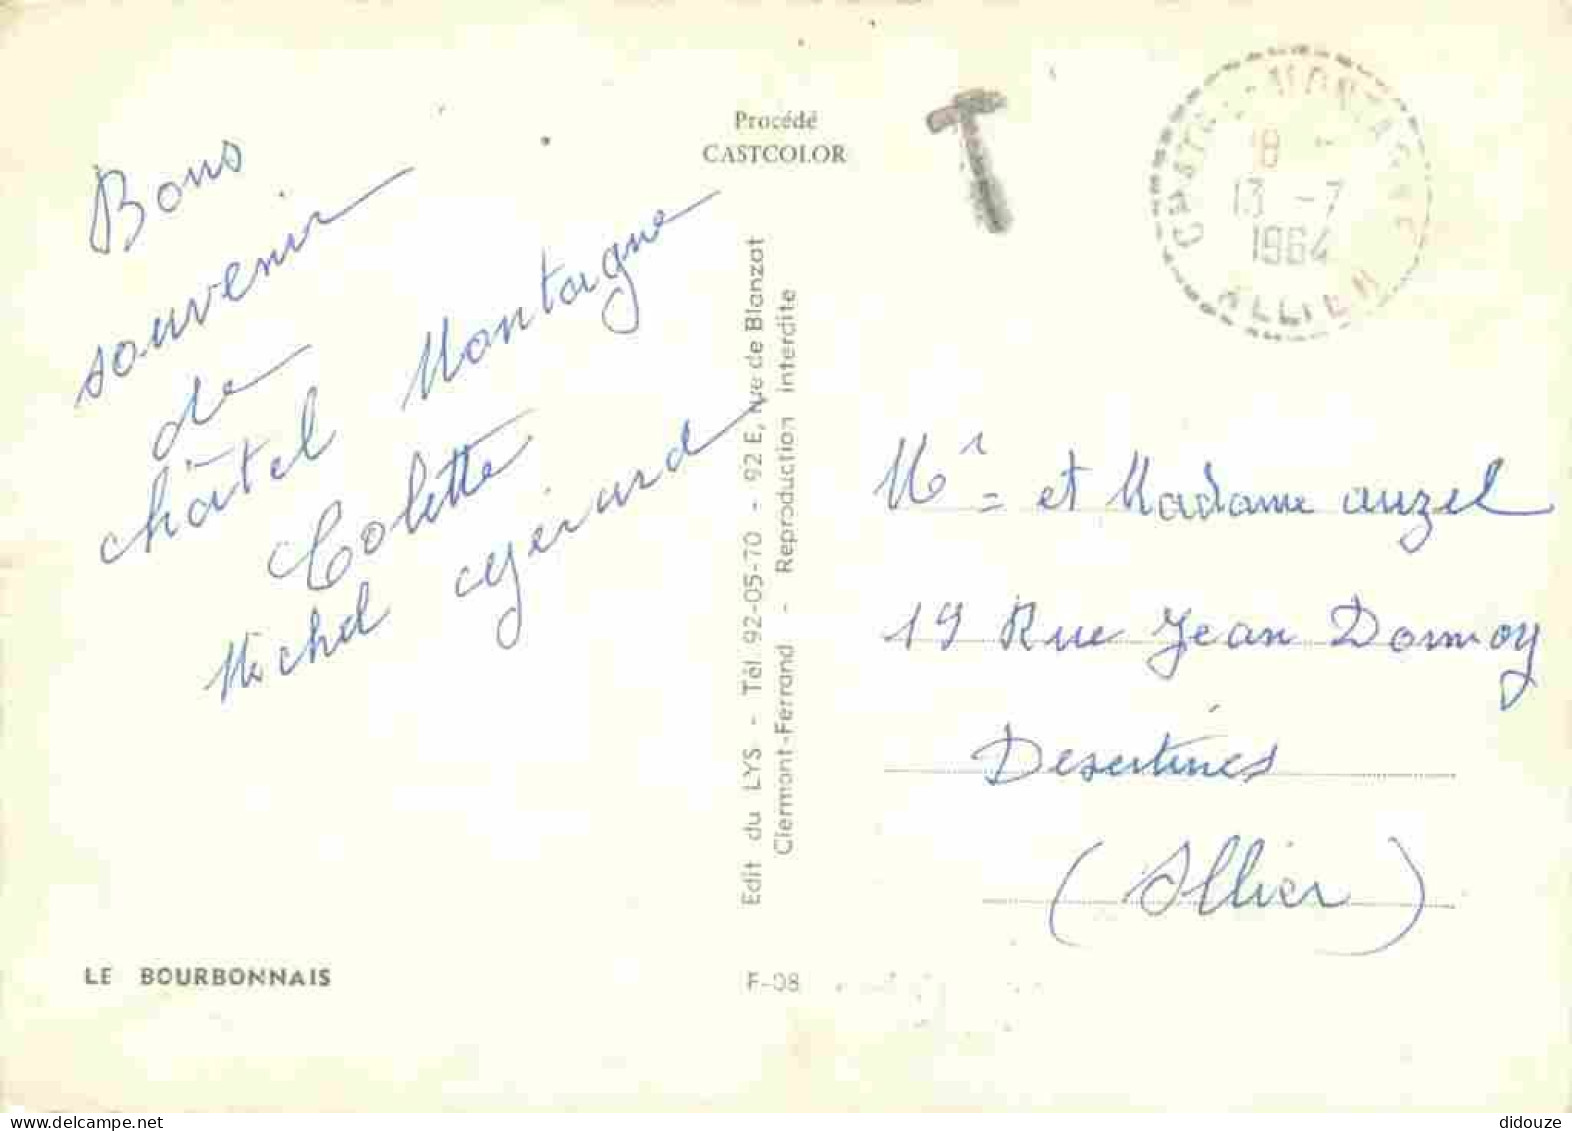 Bons
souvenir
de
châtel Montagne
Colette
Michel gérard
LE BOURBONNAIS
Procédé
CASTCOLOR
Edit du LYS - Tél. 92-05-70 - 92 E, rue de Blanzat
Clermont-Ferrand - Reproduction interdite
F-08
T
CHATEL-MONTAGNE
18 -
13 -7
1964
ALLIER
Mr et Madame auzel
19 Rue Jean Dormoy
Desertines
(Allier)
didouze